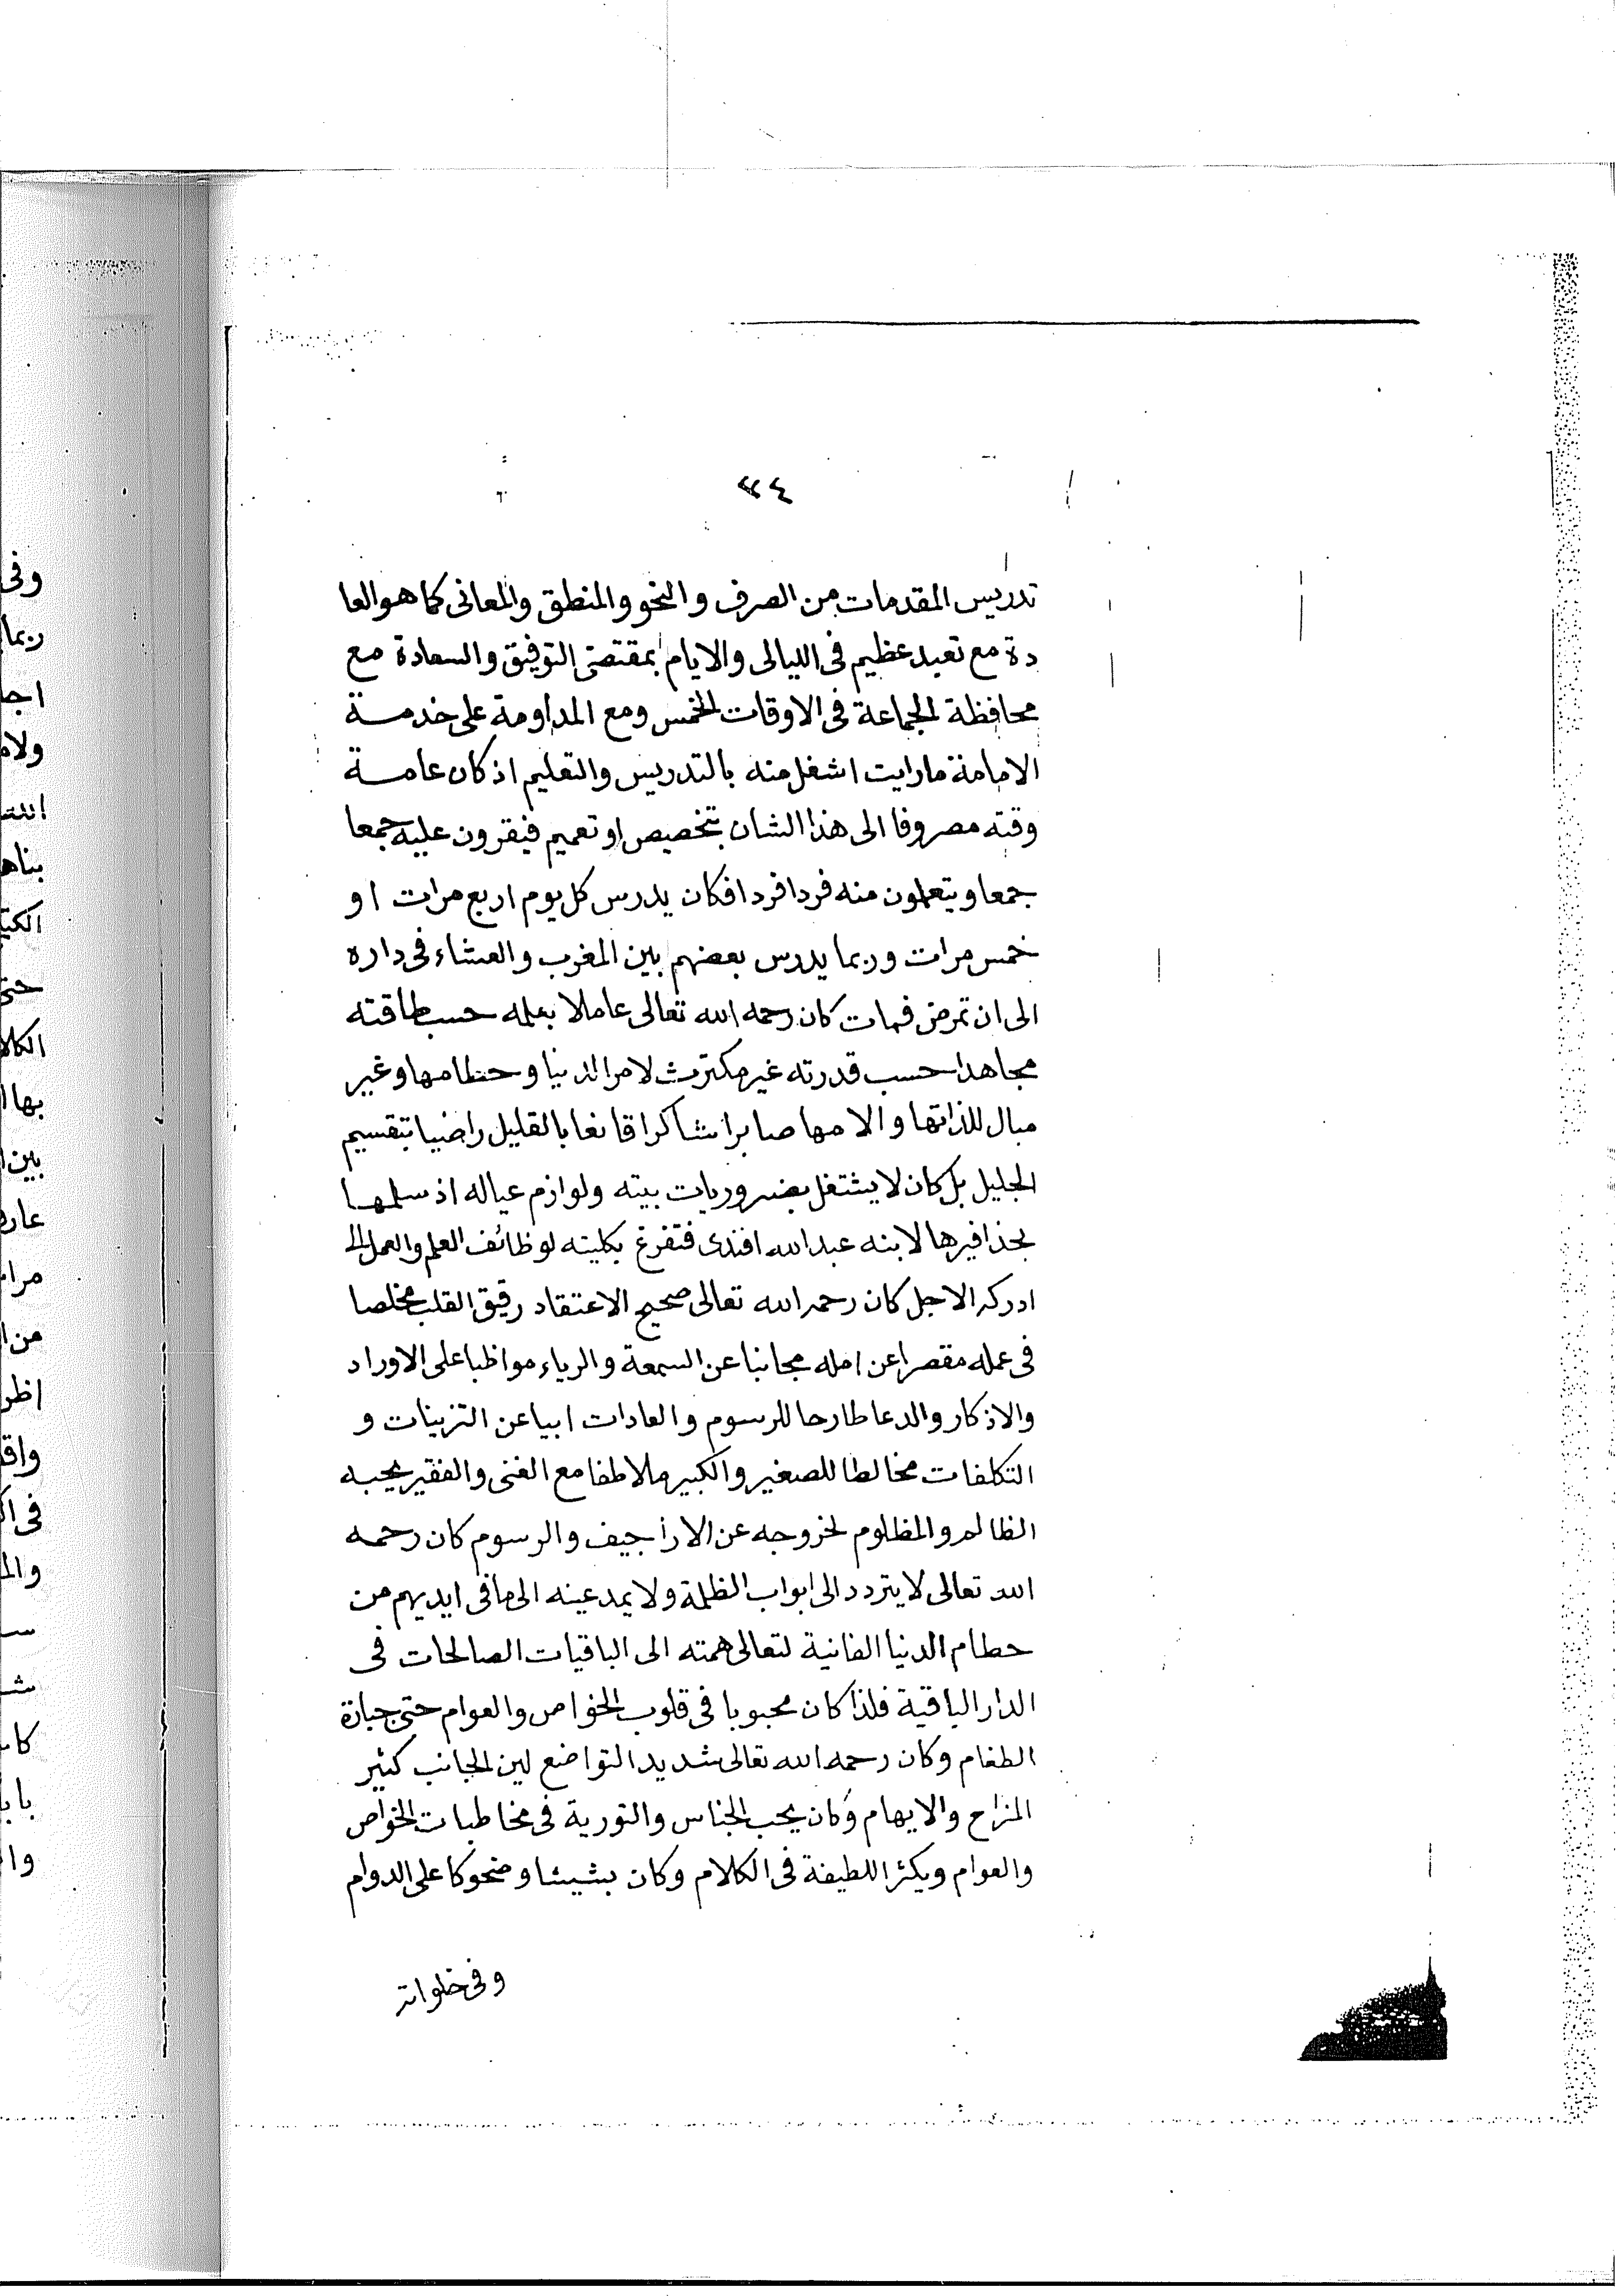 ٣٤
تدريس المقدمات من الصرف والنحو والمنطق والمعانى كما هو العا
دة مع تعبد عظيم فى الليالى والايام بمقتضى التوفيق والسعادة مع
محافظة الجماعة فى الاوقات الخمس ومع المداومة على خدمة
الامامة مارايت اشغل منه بالتدريس والتعليم اذ كان عامة
وقته مصروفا الى هذا الشان بتخصيص او تعميم فيقرون عليه جمعا
جمعا ويتعلمون منه فردا فردا فكان يدرس كل يوم اربع مرات او
خمس مرات وربما يدرس بعضهم بين المغرب والعشاء فى داره
الى ان تمرض فمات كان رحمه الله تعالى عاملا بعلمه حسب طاقته
مجاهدا حسب قدرته غير مكترث لامر الدنيا وحطامها وغير
مبال للذاتها والامها صابرا شاكرا قانعا بالقليل راضيا بتقسيم
الجليل بل كان لا يشتغل بضروريات بيته ولوازم عياله اذ سلمها
بحذافيرها لابنه عبد الله افندى فتفرغ بكليته لوظائف العلم والعمل الى
ادركه الاجل كان رحمه الله تعالى صحيح الاعتقاد رقيق القلب مخلصا
فى عمله مقصرا عن امله مجانبا عن السمعة والرياء مواظبا على الاوراد
والاذكار والدعا طارحا للرسوم والعادات ابيا عن التزينات و
التكلفات مخالطا للصغير والكبير ملاطفا مع الغنى والفقير يحبه
الظالم والمظلوم لخروجه عن الاراجيف والرسوم كان رحمه
الله تعالى لا يتردد الى ابواب الظلمة ولا يمد عينه الى ما فى ايديهم من
حطام الدنيا الفانية لتعالى همته الى الباقيات الصالحات فى
الدار الباقية فلذا كان محبوبا فى قلوب الخواص والعوام حتى جبابرة
الطغام وكان رحمه الله تعالى شديد التواضع لين الجانب كثير
المزاح والايهام وكان يحب الجناس والتورية فى مخاطبات الخواص
والعوام ويكثر اللطيفة فى الكلام وكان بشيشا وضحوكا على الدوام
وفى خلواته